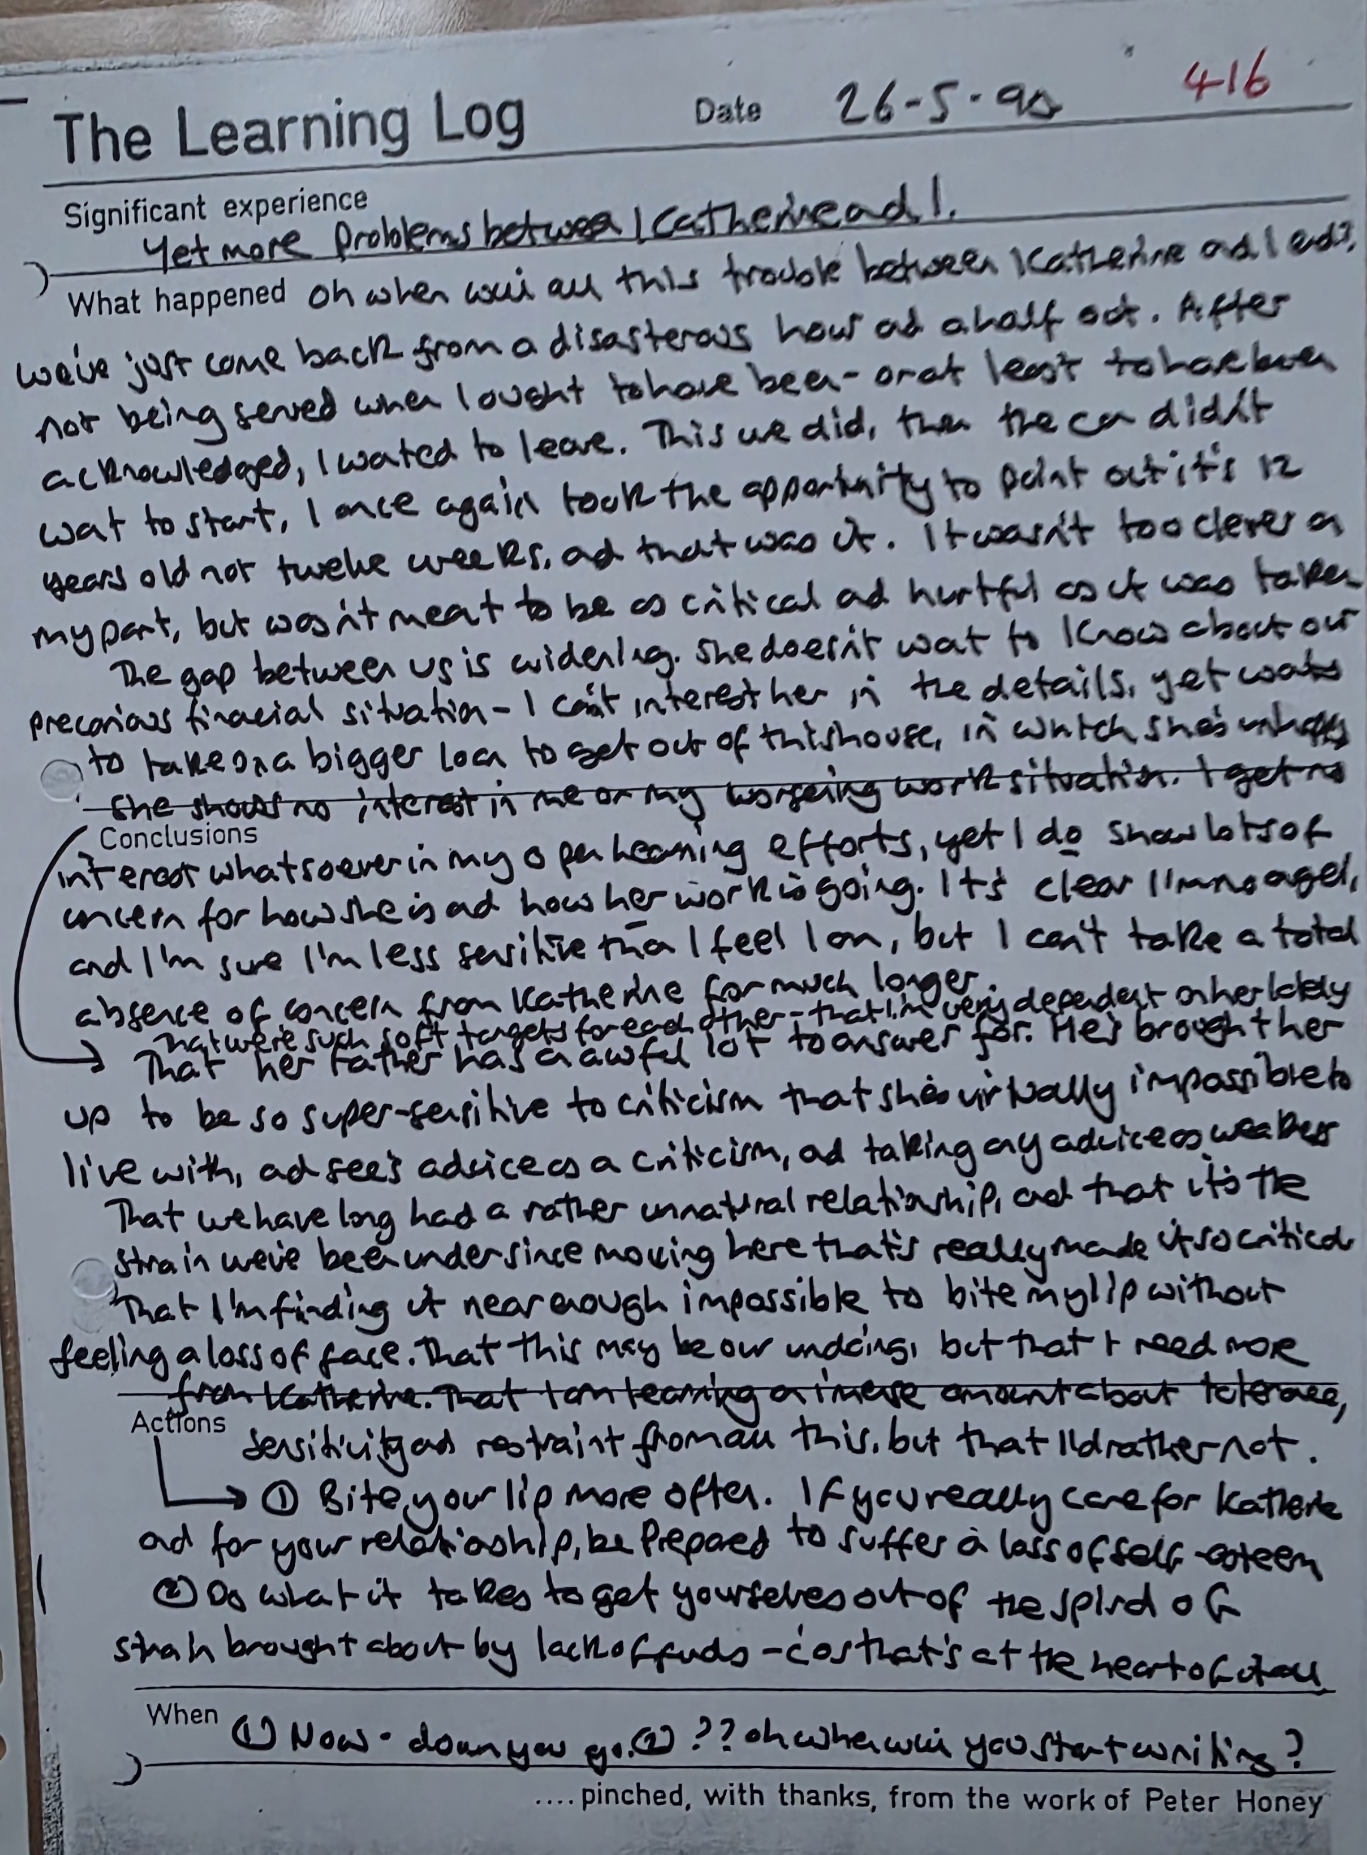 The Learning Log
Date 26-5-90
416
Significant experience
Yet more problems between Katherine ad I.
What happened Oh when will all this trouble between Katherine ad I end?
We've just come back from a disasterous hour ad a half out. After
not being served when I ought to have been - or at least to have been
acknowledged, I wated to leave. This we did, then the car did'nt
wat to start, I once again took the opportunity to point out it's 12
years old not twelve weeks, ad that was it. It was'nt too clever on
my part, but was'nt meat to be as critical ad hurtful as it was taken
The gap between us is widening. She does'nt wat to know about our
precarious finacial situation - I ca'nt interest her in the details, yet wats
to take on a bigger loan to get out of this house, in which she's unhappy
She shows no interest in me or my worsening work situation. I get no
Conclusions
interest whatsoever in my open learning efforts, yet I do show lots of
concern for how she is ad how her work is going. It's clear I'm no agel,
and I'm sure I'm less sensitive tha I feel I am, but I can't take a total
absence of concern from Katherine for much longer.
That we're such soft targets for each other - that I'm very dependent on her lately
That her father has a awful lot to answer for. He's brought her
up to be so super-sensitive to criticism that she's virtually impossible to
live with, ad sees advice as a criticism, ad taking any advice as weakness
That we have long had a rather unnatural relationship, and that it's the
strain we've been under since moving here that's really made it so critical
That I'm finding it near enough impossible to bite my lip without
feeling a loss of face. That this may be our undoing, but that I need more
from Katherine. That I am learning a imense amount about tolerance,
Actions
sensitivity ad restraint from all this, but that I'd rather not.
① Bite your lip more often. If you really care for Katherine
ad for your relationship, be prepared to suffer a loss of self-esteem
② Do what it takes to get yourselves out of the spiral of
strain brought about by lack of funds - cos that's at the heart of it all
When ① Now - down you go. ② ?? Oh when will you start writing?
.... pinched, with thanks, from the work of Peter Honey